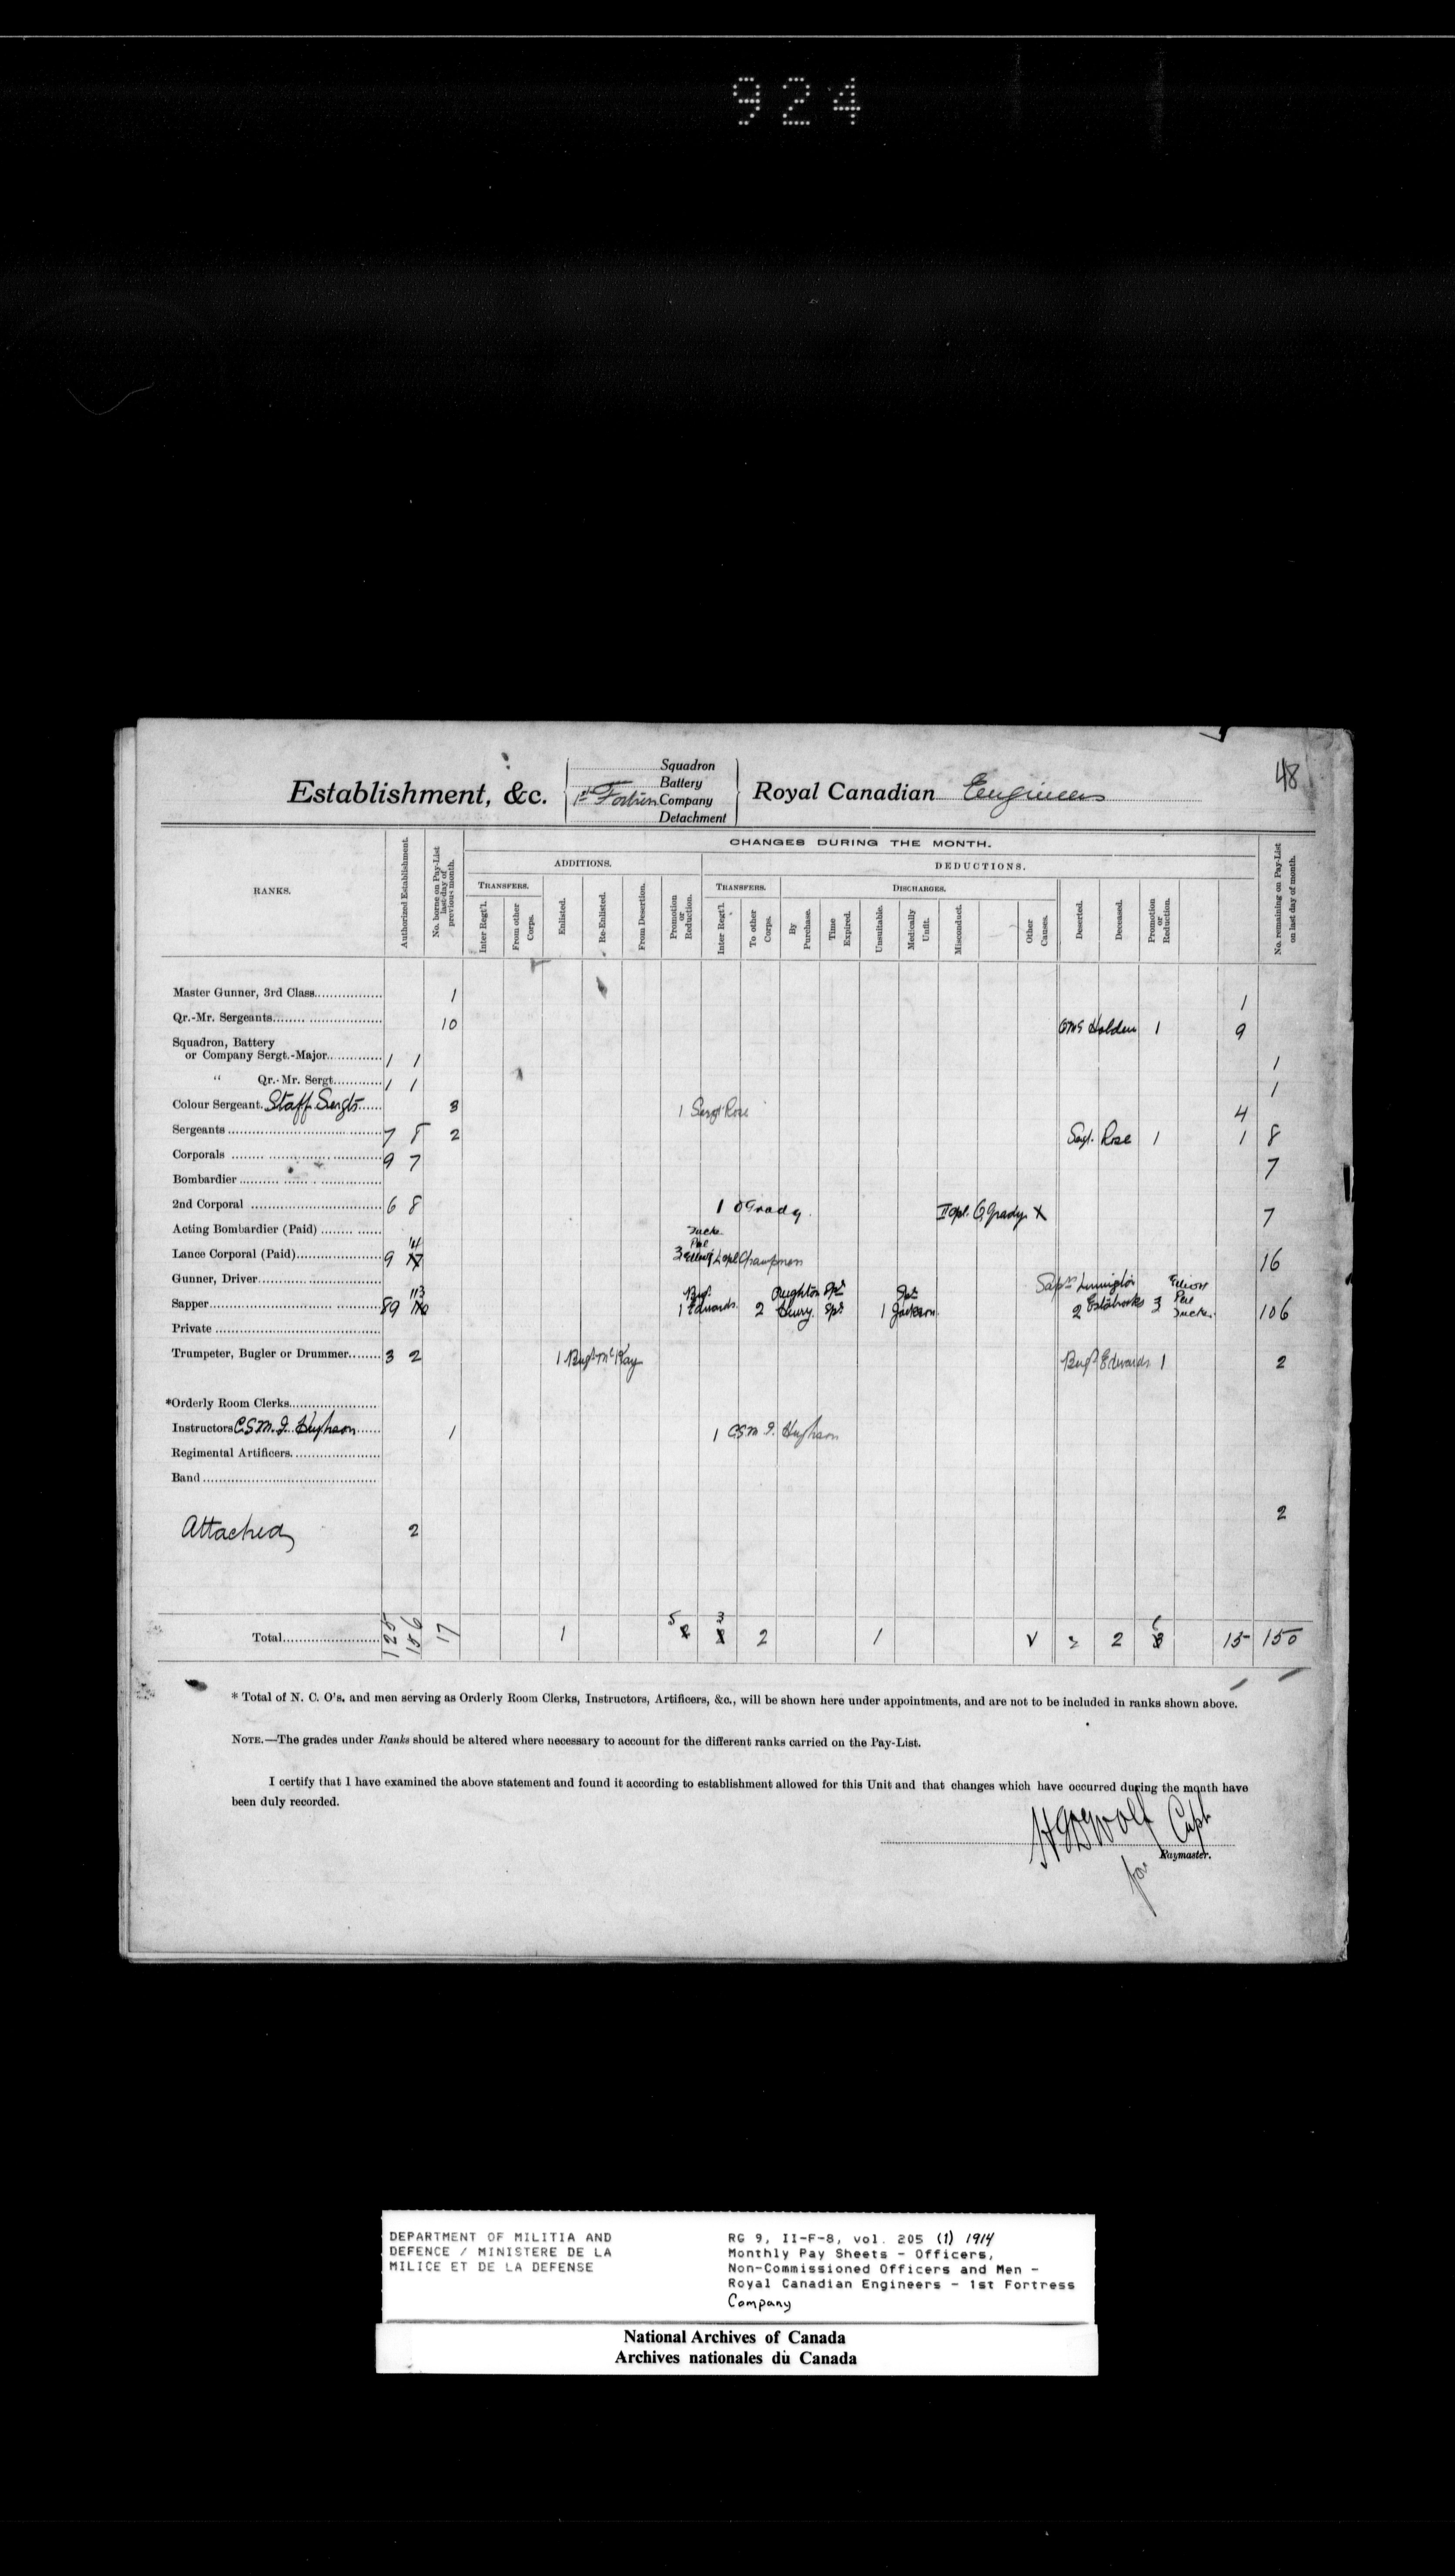 924
48
Establishment, &c.
Squadron
Battery
1st Fortress Company
Detachment
Royal Canadian Engineers
RANKS.
Authorized Establishment.
No. borne on Pay-List last day of previous month.
CHANGES DURING THE MONTH.
ADDITIONS.
DEDUCTIONS.
TRANSFERS.
TRANSFERS.
DISCHARGES.
Inter Regt'l.
From other Corps.
Enlisted.
Re-Enlisted.
From Desertion.
Promotion or Reduction.
Inter Regt'l.
To other Corps.
By Purchase.
Time Expired.
Unsuitable.
Medically Unfit.
Misconduct.
Other Causes.
Deserted.
Deceased.
Promotion or Reduction.
No. remaining on Pay-List on last day of month.
Master Gunner, 3rd Class 1 1
Qr.-Mr. Sergeants 10 QMS Holden 1 9
Squadron, Battery
or Company Sergt.-Major 1 1 1
" Qr.-Mr. Sergt. 1 1 1
Colour Sergeant. Staff Sergts 3 1 Sergt Rose 4
Sergeants 7 8 2 Sergt. Rose 1 1 8
Corporals 9 7 7
Bombardier
2nd Corporal 6 8 1 O'Grady II Cpl. O'Grady X 7
Acting Bombardier (Paid)
Lance Corporal (Paid) 9 14 3 L Cpl Chapman 16
Gunner, Driver
Sapper 89 113 1 Edwards 2 Spr 1 Jackson 2 Estabrooks 3 106
Private
Trumpeter, Bugler or Drummer 3 2 1 Bugr McKay Bugr Edwards 1 2
*Orderly Room Clerks
Instructors C.S.M. I. Hughson 1 1 C.S.M. I. Hughson
Regimental Artificers
Band
Attached 2 2
Total 125 156 17 1 5 3 2 1 V 2 2 6 15 150
* Total of N. C. O's. and men serving as Orderly Room Clerks, Instructors, Artificers, &c., will be shown here under appointments, and are not to be included in ranks shown above.
NOTE.—The grades under Ranks should be altered where necessary to account for the different ranks carried on the Pay-List.
I certify that I have examined the above statement and found it according to establishment allowed for this Unit and that changes which have occurred during the month have
been duly recorded.
Capt
for Paymaster.
DEPARTMENT OF MILITIA AND
DEFENCE / MINISTERE DE LA
MILICE ET DE LA DEFENSE
RG 9, II-F-8, vol. 205 (1) 1914
Monthly Pay Sheets - Officers,
Non-Commissioned Officers and Men -
Royal Canadian Engineers - 1st Fortress
Company
National Archives of Canada
Archives nationales du Canada